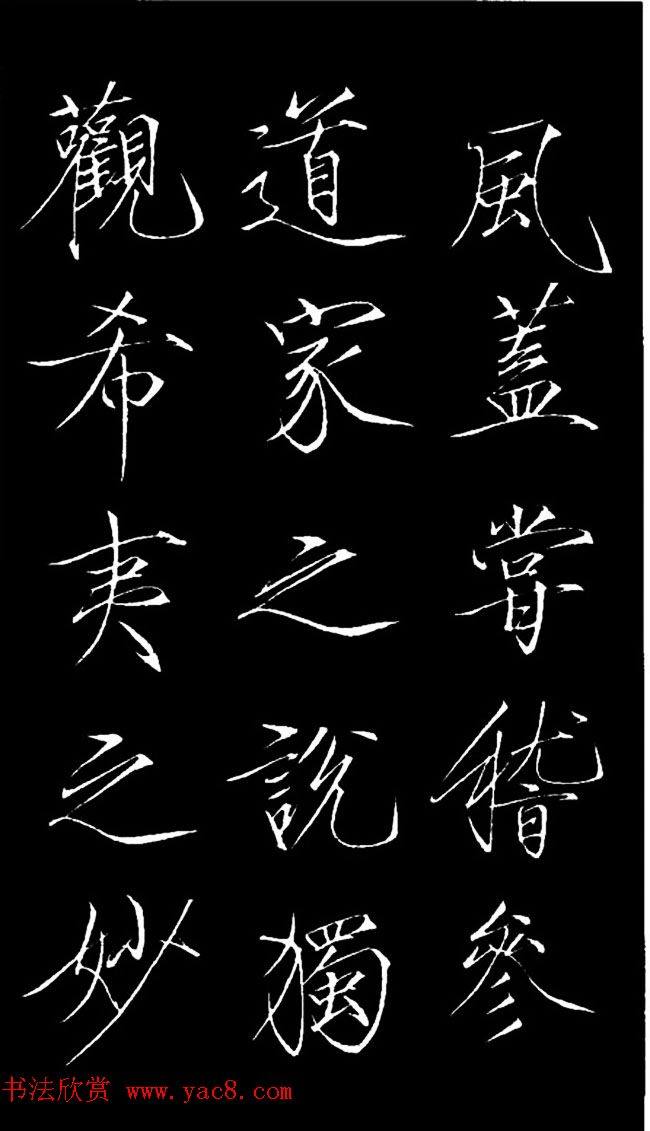 風蓋甞稽參
道家之說獨
觀希夷之妙
书法欣赏 www.yac8.com